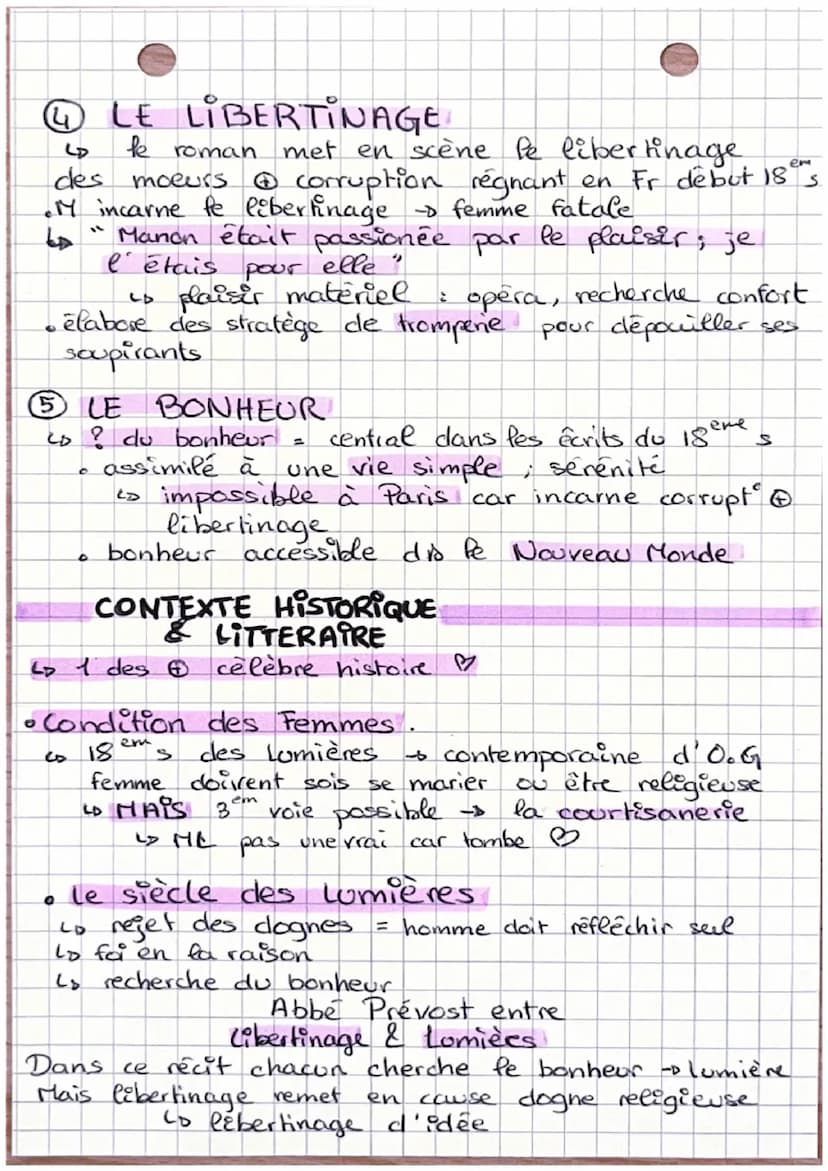 ④ LE LIBERTINAGE
↳ le roman met en scène le libertinage
des moeurs ⊕ corruption régnant en Fr début 18em s
• M incarne le libertinage → femme fatale
↳ " Manon était passionée par le plaisir ; je
l'étais pour elle "
↳ plaisir matériel : opéra, recherche confort
• élabore des stratège de tromperie pour dépouiller ses
soupirants
⑤ LE BONHEUR
↳ ? du bonheur = central dans les écrits du 18eme s
• assimilé à une vie simple ; sérénité
↳ impossible à Paris car incarne corrupt° ⊕
libertinage
• bonheur accessible ds le Nouveau Monde
CONTEXTE HISTORIQUE
& LITTERAIRE
↳ 1 des ⊕ célèbre histoire ♡
• Condition des Femmes.
↳ 18em s des Lumières → contemporaine d'O.G
femme doivent sois se marier ou être religieuse
↳ MAIS 3em voie possible → la courtisanerie
↳ ML pas une vrai car tombe ♡
• Le siècle des Lumières
↳ rejet des dognes = homme doit réfléchir seul
↳ foi en la raison
↳ recherche du bonheur
Abbé Prévost entre
Libertinage & Lumières
Dans ce récit chacun cherche le bonheur → lumière
Mais libertinage remet en cause dogne religieuse
↳ libertinage d'idée